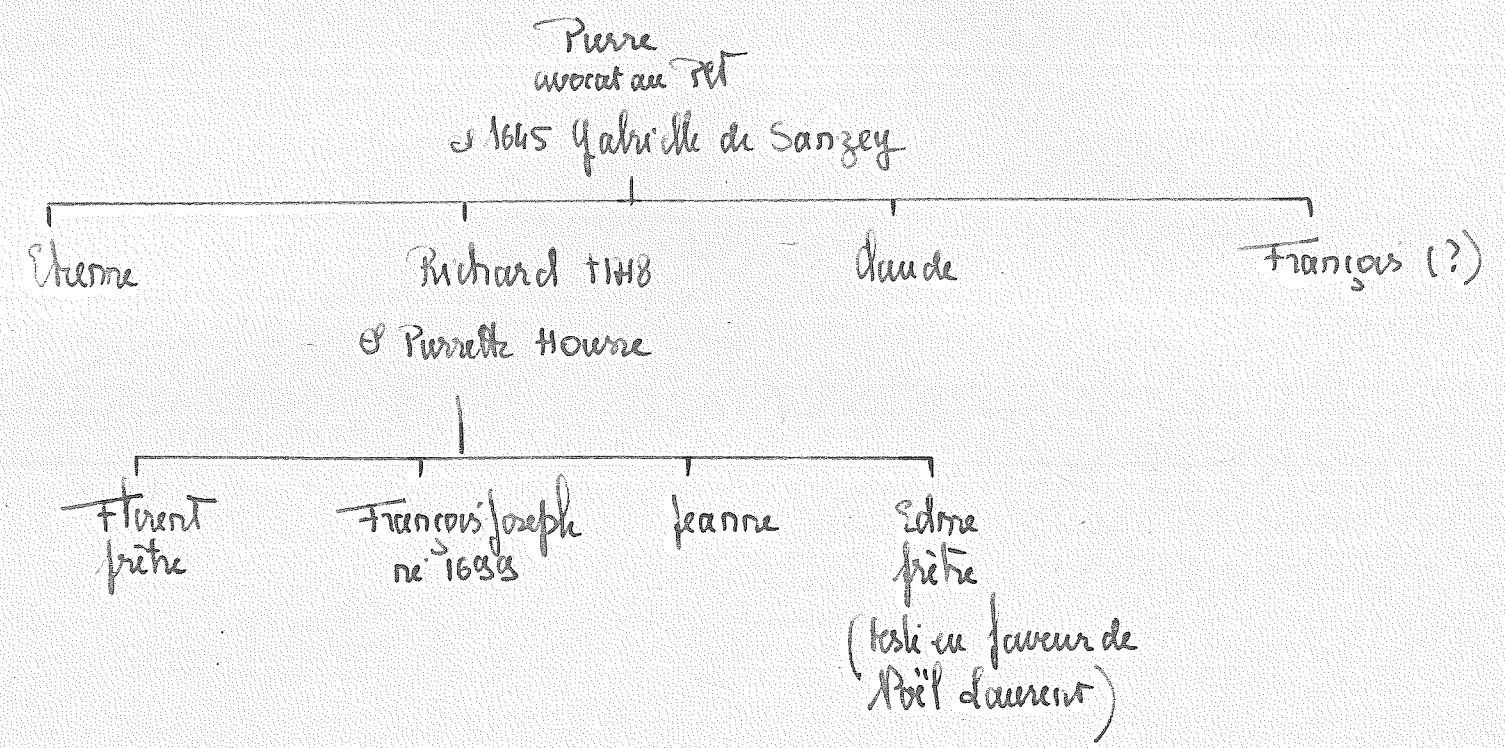 Pierre
avocat au Plt
1645 Gabrielle de Sanzey
Etienne
Richard
Claude
François (?)
Pierrette Housse
Florent
prêtre
François Joseph
né 1699
Jeanne
Edme
prêtre
(teste en faveur de
Noël Laurent)